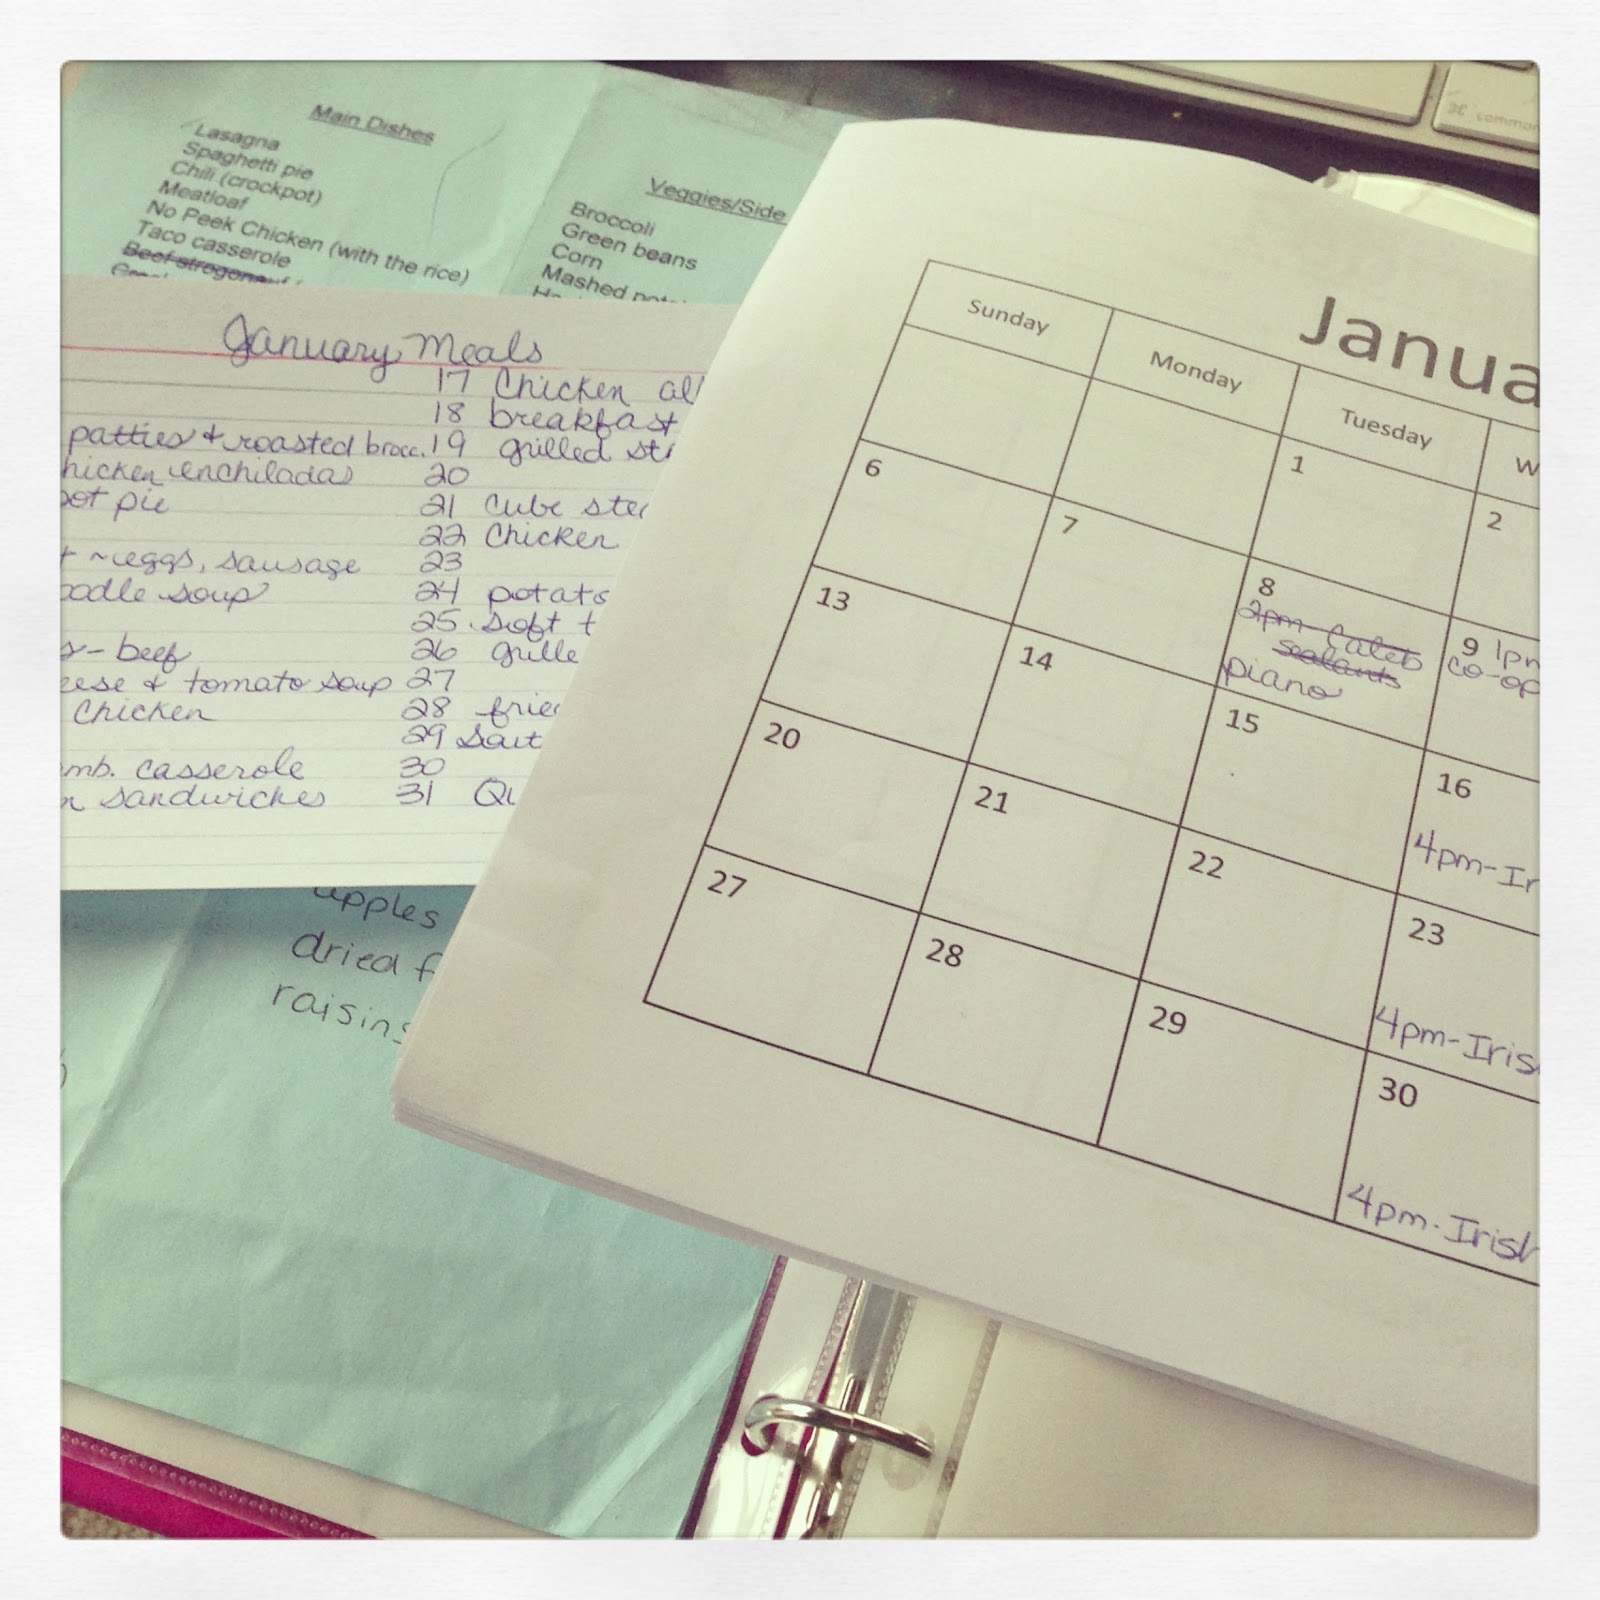 Main Dishes
Lasagna
Spaghetti pie
Chili (crockpot)
Meatloaf
No Peek Chicken (with the rice)
Taco casserole
Beef
Veggies/Side
Broccoli
Green beans
Corn
Mashed
January Meals
17 Chicken
18 breakfast
patties & roasted brocc. 19 grilled
enchiladas 20
pot pie 21 cube
22 Chicken
~eggs, sausage 23
soup 24
25 soft
- beef 26
& tomato soup 27
Chicken 28
29
casserole 30
sandwiches 31
apples
dried
raisins
command
Sunday Monday Tuesday
1 2
6 7 8 9
2pm Caleb
sealants
piano
1pm
co-op
13 14 15 16
4pm-
20 21 22 23
4pm-
27 28 29 30
4pm-